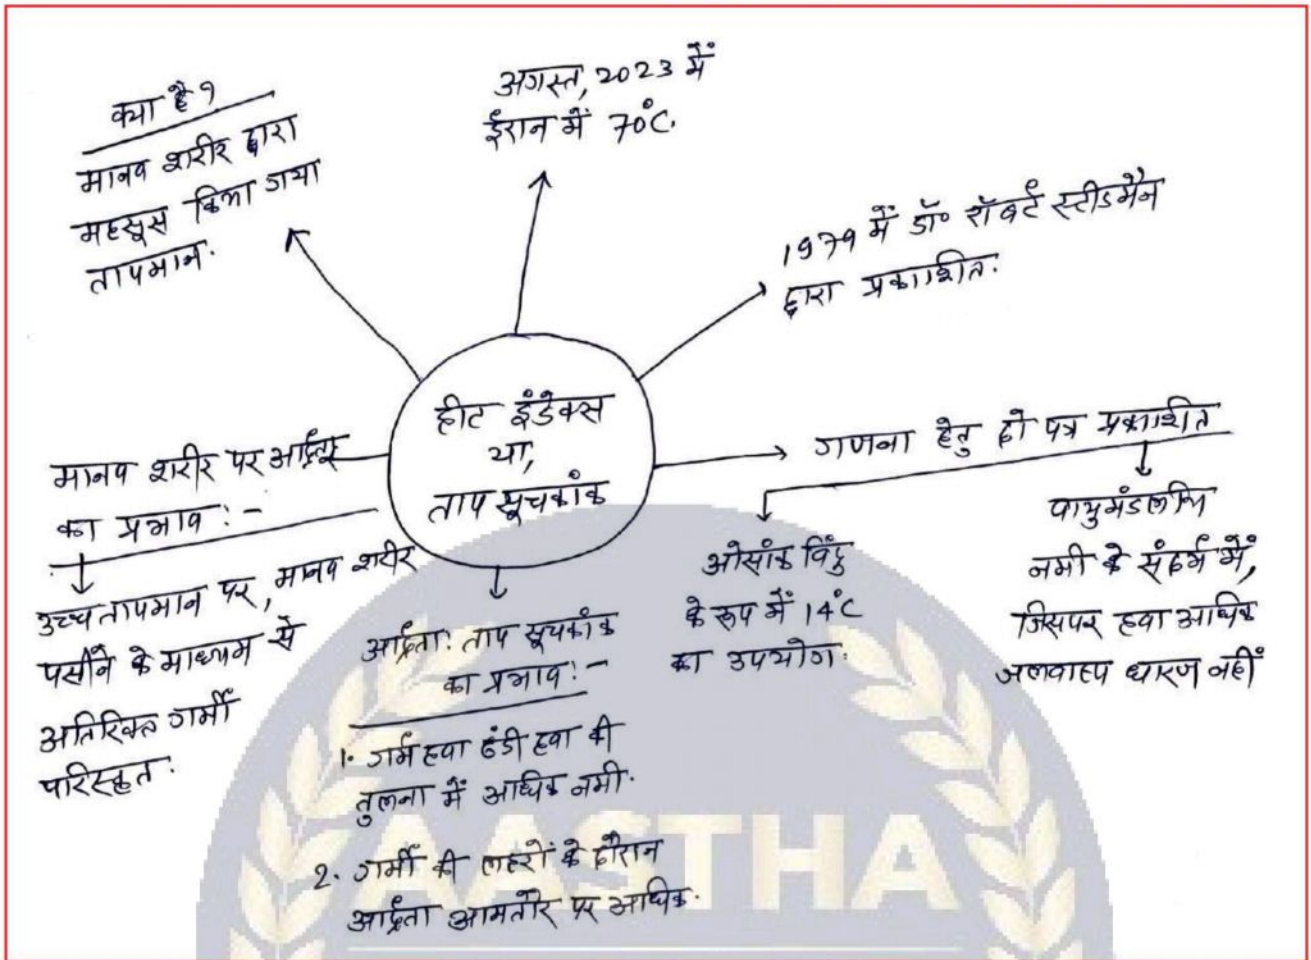 क्या है ?
मानव शरीर द्वारा
महसूस किया गया
तापमान.
अगस्त, 2023 में
ईरान में 70°C.
1979 में डॉ० रॉबर्ट स्टीडमैन
द्वारा प्रकाशित.
हीट इंडेक्स
या,
ताप सूचकांक
गणना हेतु दो पत्र प्रकाशित
ओसांक बिंदु
के रूप में 14°C
का उपयोग.
वायुमंडलीय
नमी के संदर्भ में,
जिसपर हवा अधिक
जलवाष्प धारण नहीं
मानव शरीर पर आर्द्रता
का प्रभाव : -
उच्च तापमान पर, मानव शरीर
पसीने के माध्यम से
अतिरिक्त गर्मी
परिस्कृत.
आर्द्रता: ताप सूचकांक
का प्रभाव: -
1. गर्म हवा ठंडी हवा की
तुलना में अधिक नमी.
2. गर्मी की लहरों के दौरान
आर्द्रता आमतौर पर अधिक.
AASTHA